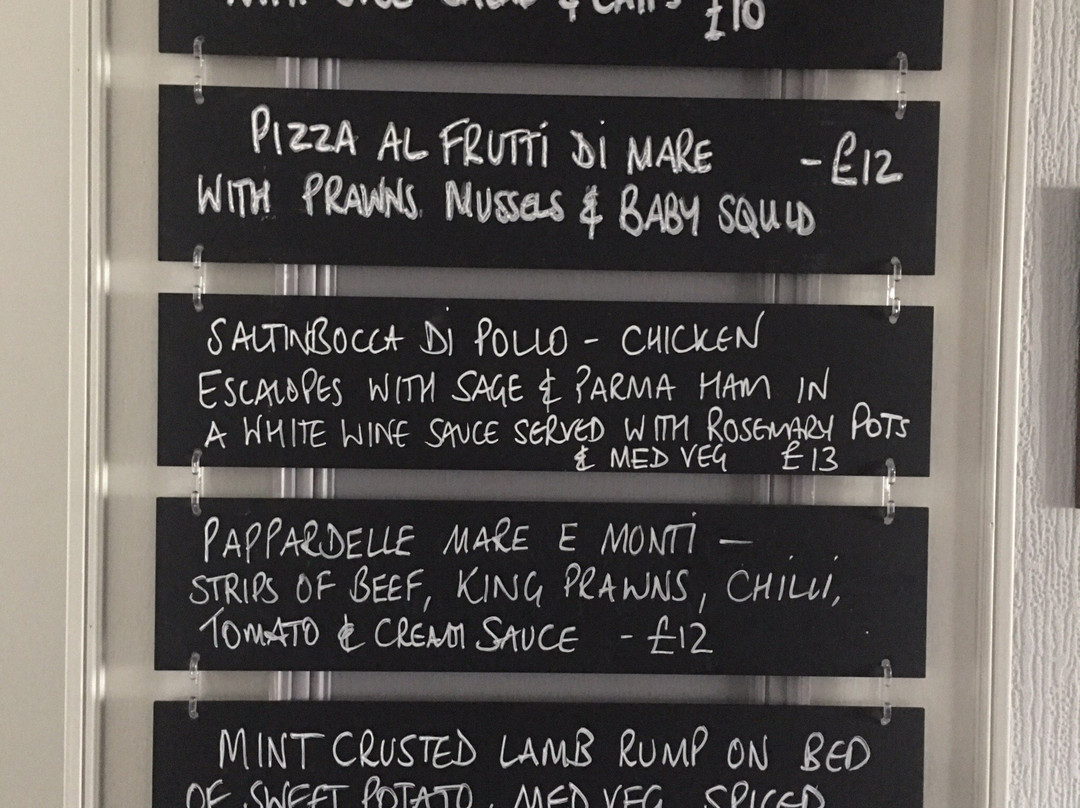 & CHIPS £10
PIZZA AL FRUTTi Di MARE -£12
WITH PRAWNS. MUSSELS & BABY SQUID
SALTINBOCCA Di POLLO - CHICKEN
ESCALOPES WITH SAGE & PARMA HAM IN
A WHITE WINE SAUCE SERVED WITH ROSEMARY POTS
& MED VEG £13
PAPPARDELLE MARE E MONTi —
STRIPS OF BEEF, KING PRAWNS, CHILLi,
TOMATO & CREAM SAUCE - £12
MINT CRUSTED LAMB RUMP ON BED
OF SWEET POTATO, MED VEG, SPICED